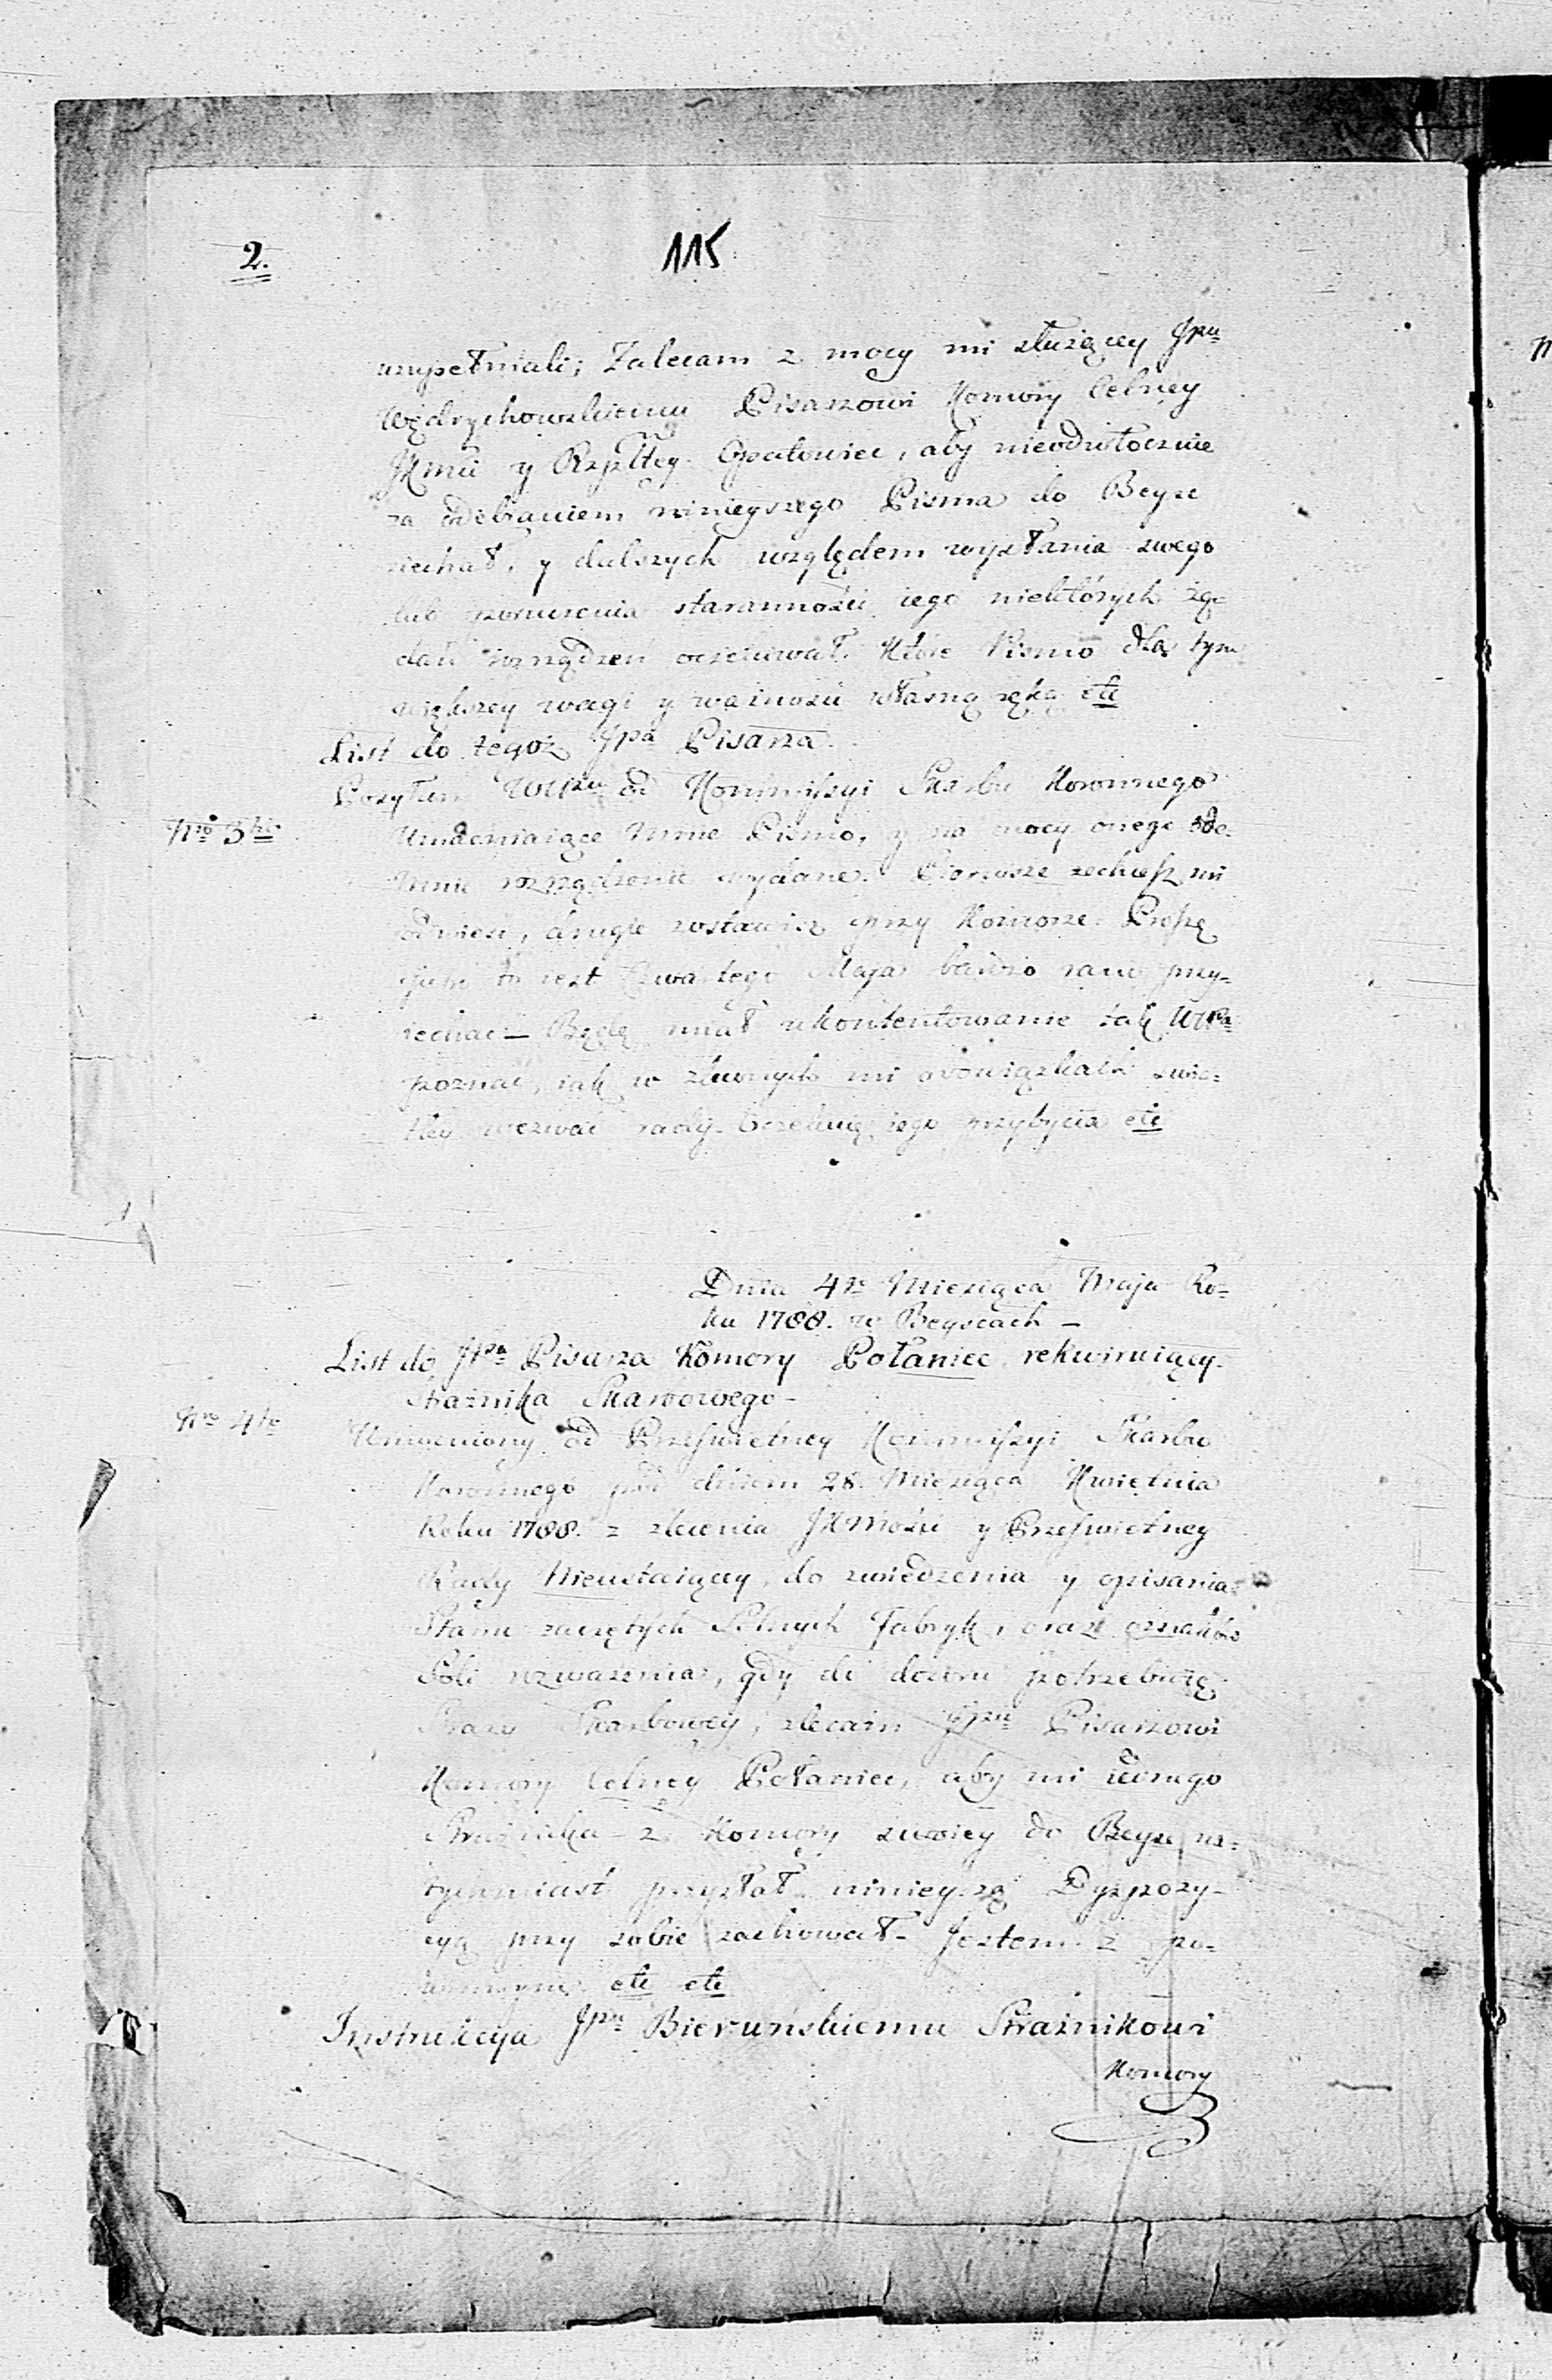 2.
115
uzupełniali; Zalecam z mocy mi służącey Jpu
Wędrychowskiemu Pisarzowi Komory Celney
JKmci y Rzpltey Opatowiec, aby nieodwłocznie
za odebraniem ninieyszego Pisma do Beysc
ziechał, y dalszych względem wysłania swego
lub poruszenia staranności iego niektórych żą-
dań rozrządzeń oczekiwał. Które Pismo dla tym
większey wagi y ważności własną ręką etc
List do tegoż Jpa Pisarza.
Posyłam WMPanu od Kommissyi Skarbu Koronnego
Nro 3tio
Umocniaiące mnie Pismo, y na mocy onego ode-
mnie rozrządzenie wydane. Pierwsze zechcesz mi
odnieść, drugie zostawisz przy Komorze. Proszę
jutro to iest Czwartego Maja bardzo rano przy-
iechać – Będę miał ukontentowanie tak WPa
poznać, iak w zleconych mi obowiązkach
wezwać rady. Oczekuię iego przybycia etc
Dnia 4go Miesiąca Maja Ro-
ku 1788. w Beyscach –
List do JPa Pisarza Komory Połaniec rekwiruiący
Strażnika Skarbowego –
Nro 4to
Umocniony od Prześwietney Kommissyi Skarbu
Koronnego pod dniem 28. Miesiąca Kwietnia
Roku 1788. z zlecenia JKMości y Prześwietney
Rady Nieustaiącey, do zwiedzenia y opisania
Stanu zaczętych Solnych Fabryk, oraz oznaków
Soli rozważenia, gdy do dozoru potrzebuię
Straży Skarbowey, zlecam Jpu Pisarzowi
Komory Celney Połaniec, aby mi iednego
Strażnika z Komory swoiey do Beysc na-
tychmiast przysłał, ninieyszą Dyspozy-
cyą przy sobie zachował – Jestem z po-
winnym etc etc
Instrukcya Jpu Bieruńskiemu Strażnikowi
Komory